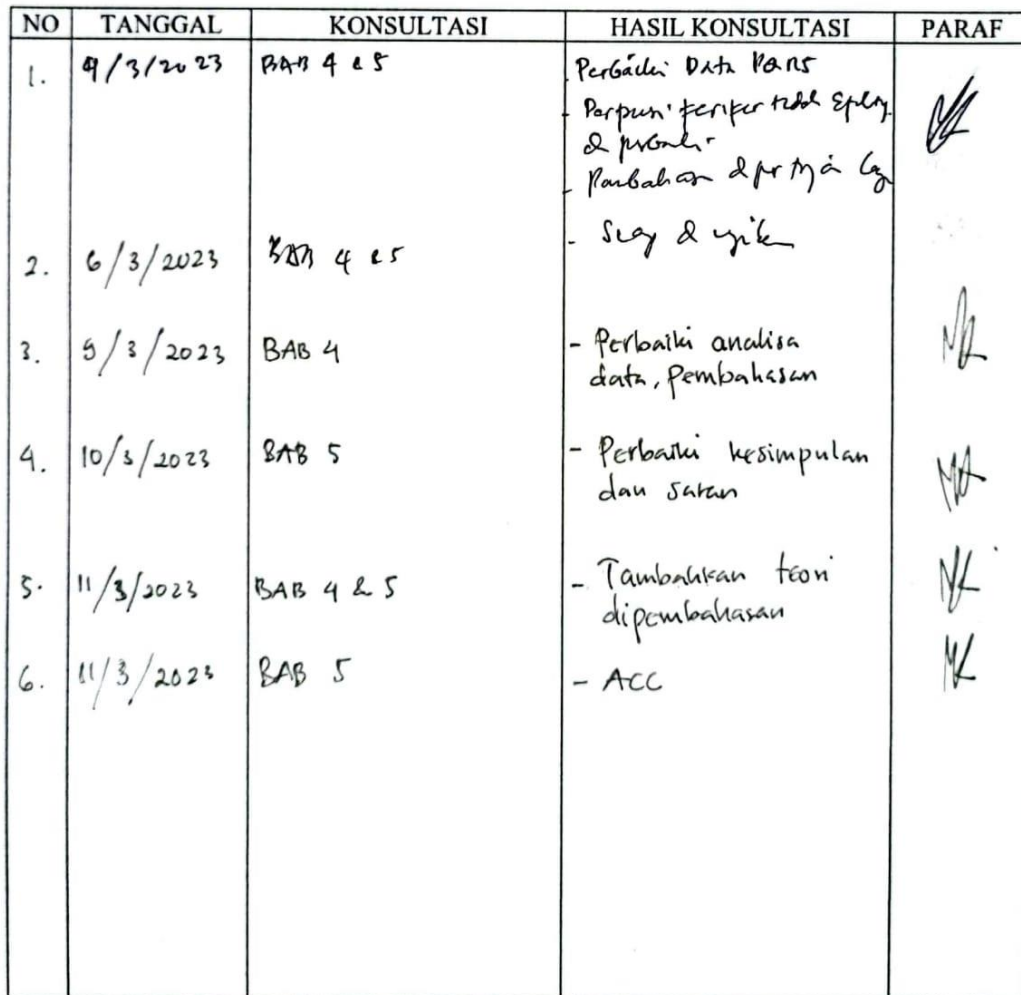 NO TANGGAL KONSULTASI HASIL KONSULTASI PARAF
1. 4/3/2023 BAB 4 & 5 Perbaiki Data
2. 6/3/2023 BAB 4 & 5 -
3. 9/3/2023 BAB 4 - Perbaiki analisa
data, pembahasan
4. 10/3/2023 BAB 5 - Perbaiki kesimpulan
dan saran
5. 11/3/2023 BAB 4 & 5 - Tambahkan teori
dipembahasan
6. 11/3/2023 BAB 5 - ACC